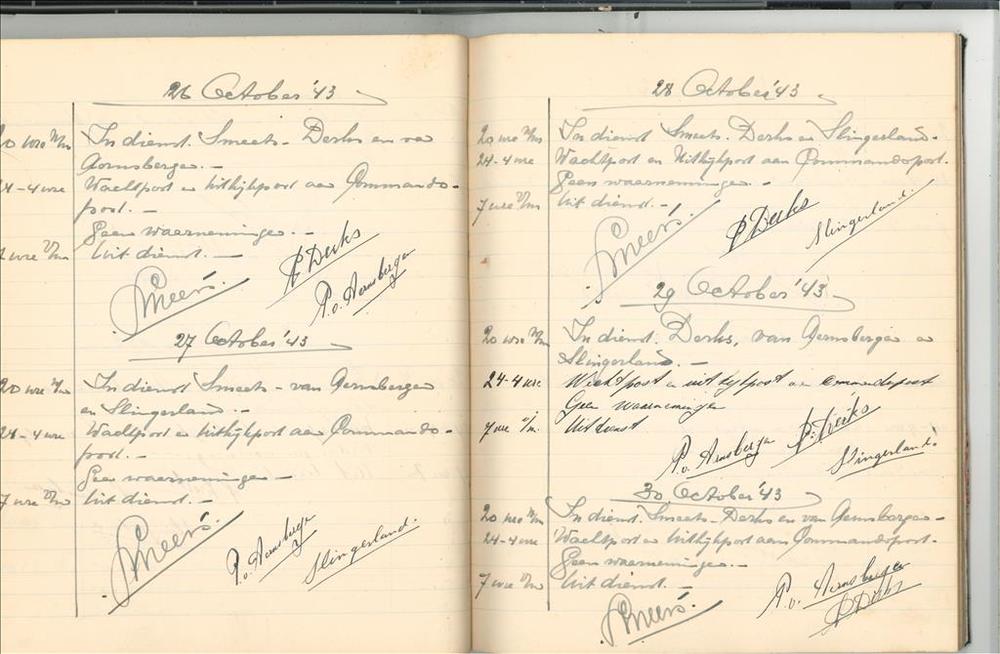 26 October '43
20 ure n/m In dienst Smeets - Derks en van
Aernsbergen. -
24-4 ure Wachtpost en Uitkijkpost aan Commando-
post. -
Geen waarneminge. -
7 ure v/m Uit dienst. -
Smeets. P Derks
P. v. Aernsbergen
27 October '43
20 ure n/m In dienst Smeets - van Aernsbergen
en Slingerland. -
24-4 ure Wachtpost en Uitkijkpost aan Commando-
post. -
Geen waarneminge -
7 ure v/m Uit dienst. -
Smeets. P. v. Aernsbergen Slingerland.
28 October '43
20 ure n/m In dienst Smeets - Derks en Slingerland -
24-4 ure Wachtpost en Uitkijkpost aan Commandopost.
Geen waarneminge. -
7 ure v/m Uit dienst. -
Smeets. P Derks Slingerland.
29 October '43
20 ure n/m In dienst. Derks, van Aernsbergen en
Slingerland. -
24-4 ure Wachtpost en uitkijkpost aan Commandopost
Geen waarnemingen
7 ure v/m. Uit dienst
P. v. Aernsbergen P. Derks
Slingerland.
30 October '43
20 ure n/m In dienst. Smeets - Derks en van Aernsbergen -
24-4 ure Wachtpost en Uitkijkpost aan Commandopost. -
Geen waarneminge. -
7 ure v/m Uit dienst. -
Smeets. P. v. Aernsbergen
P Derks